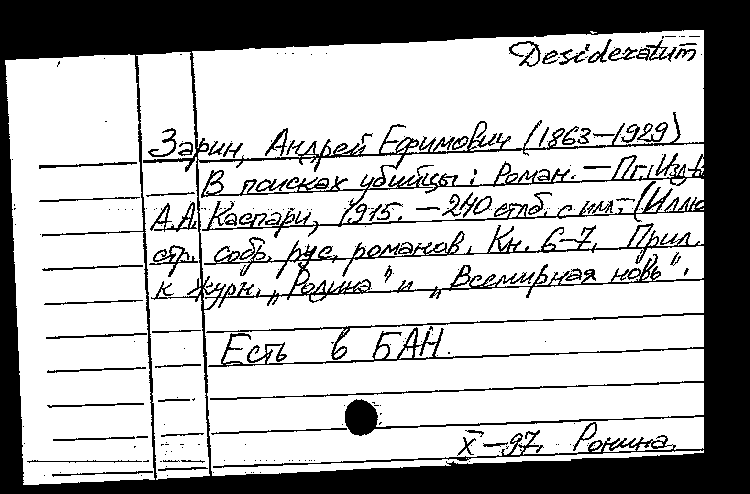 Desideratum
Зарин, Андрей Ефимович (1863–1929)
В поисках убийцы: Роман. – Пг.: Изд-во
А.А. Каспари, 1915. – 240 стлб. с илл. – (Иллю
стр. собр. рус. романов. Кн. 6–7. Прил.
к журн. „Родина" и „Всемирная новь".
Есть в БАН.
X – 97. Ронина.